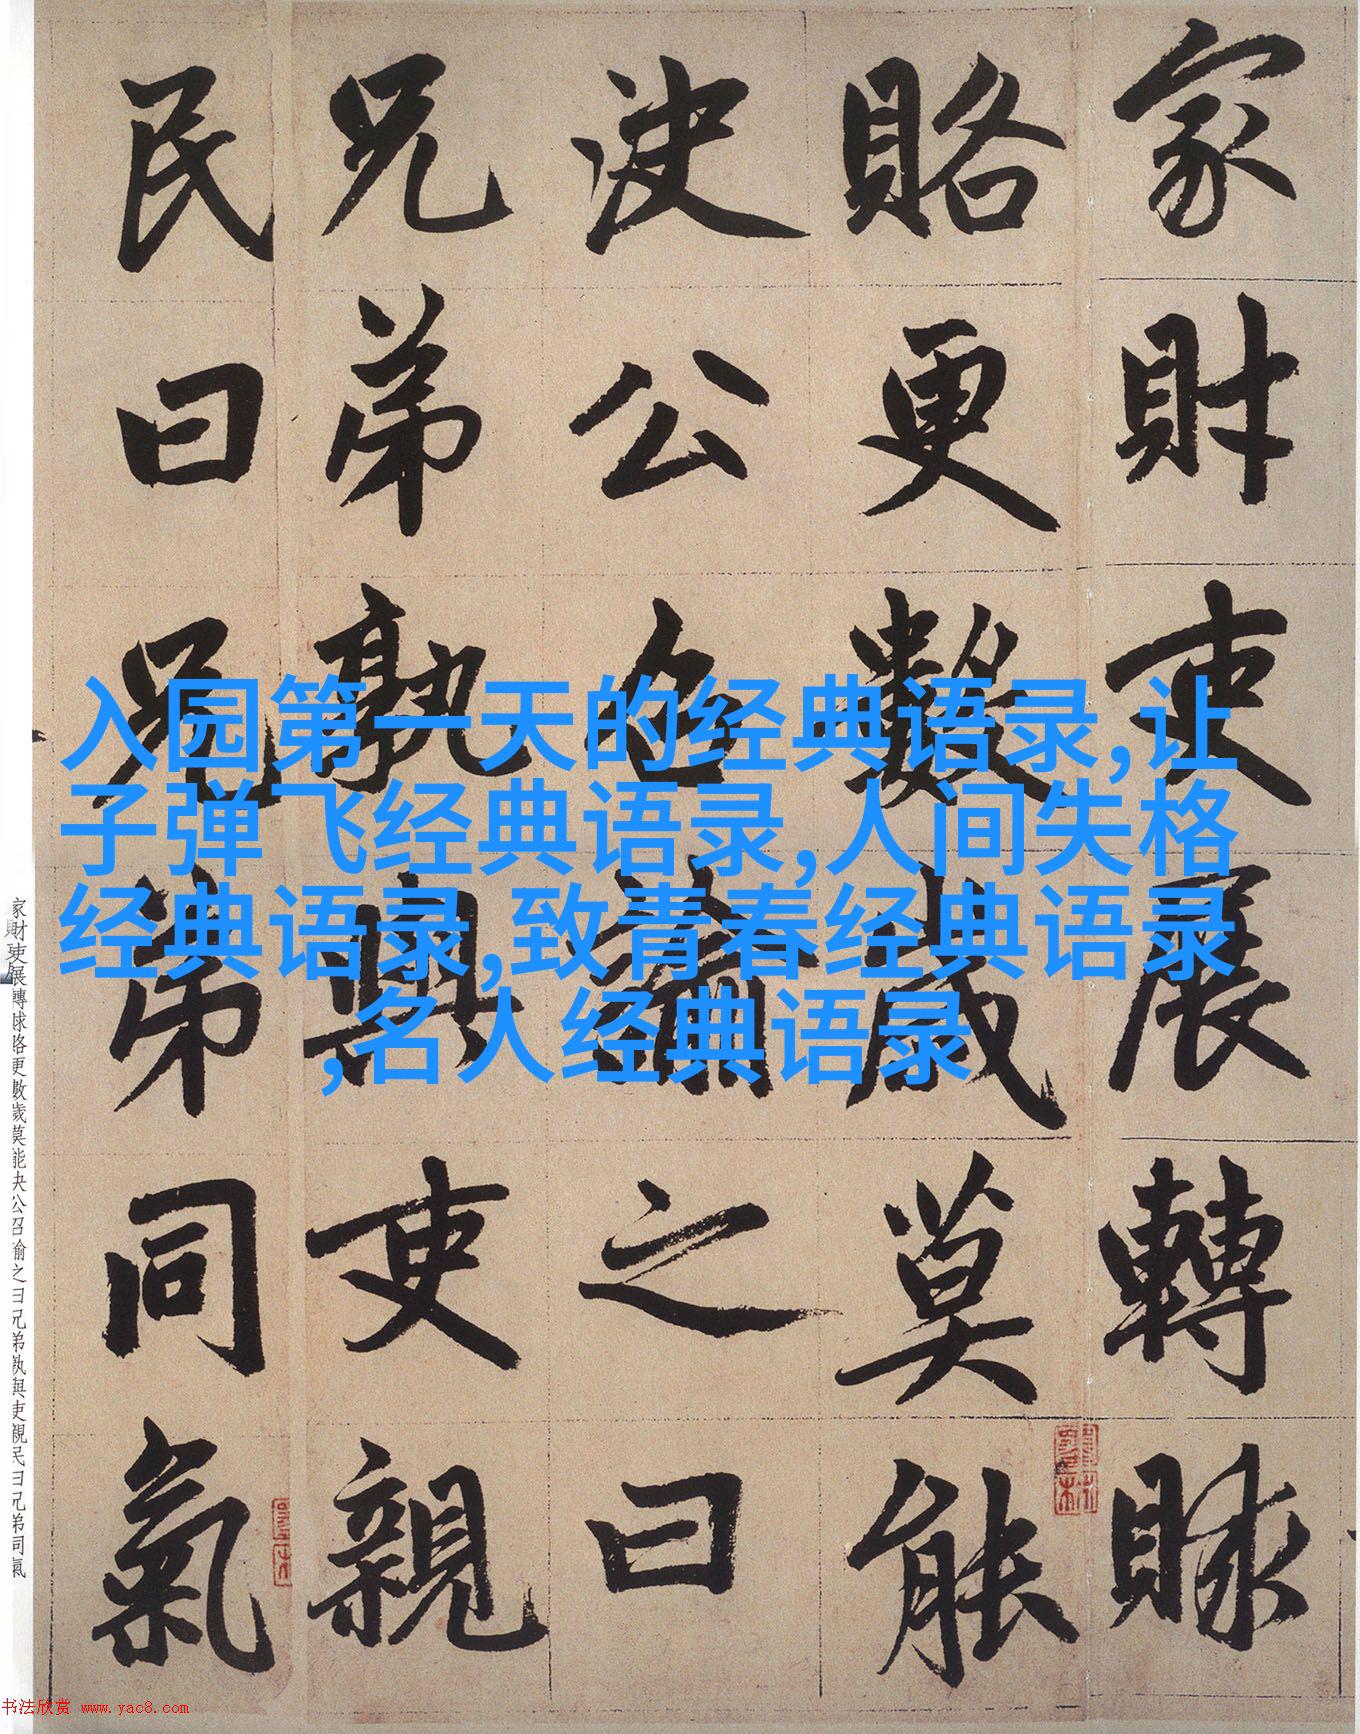 家財吏展轉賕
賂更數歲莫能
決公召諭之曰
兄弟孰與吏親
民曰兄弟同氣
入园第一天的经典语录,让
子弹飞经典语录,人间失格
经典语录,致青春经典语录
,名人经典语录
家財吏展轉賕賂更數歲莫能決公召諭之曰兄弟孰與吏親民曰兄弟同氣
书法欣赏 www.yac8.com